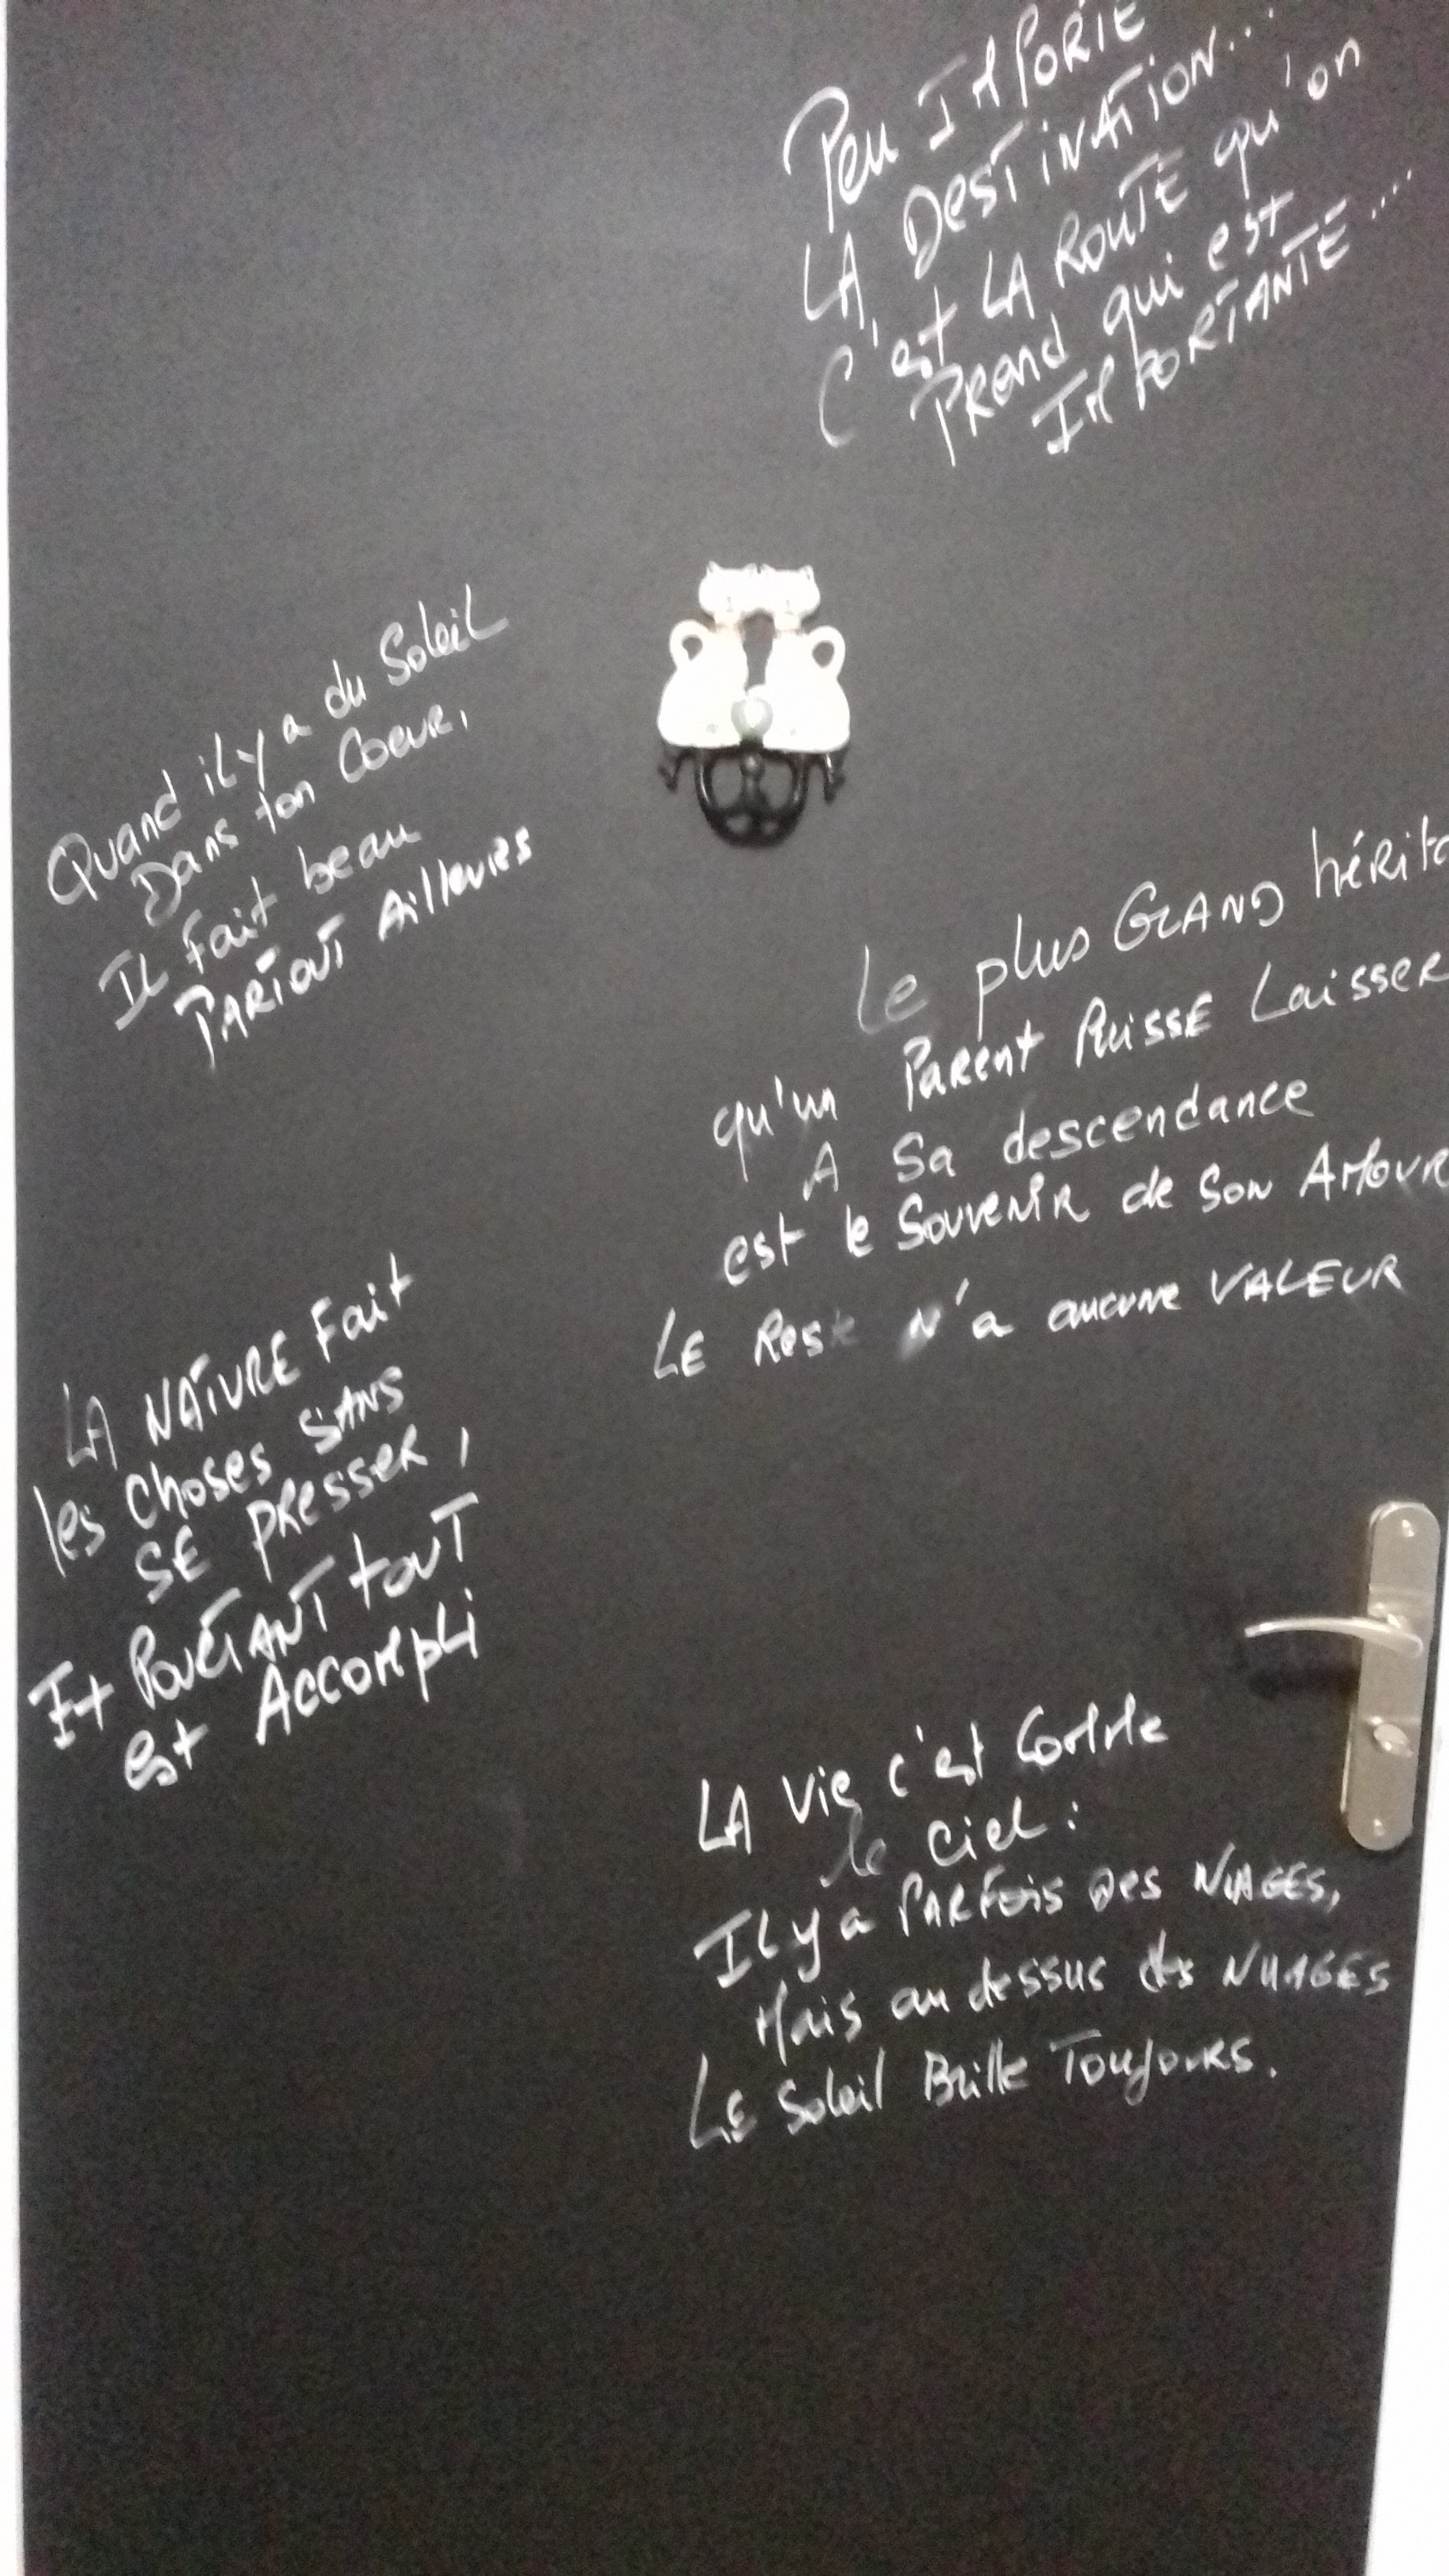 Peu IMPORTE
LA DESTINATION...
C'est LA ROUTE qu'on
PREND qui est
IMPORTANTE....
Quand il y a du Soleil
Dans ton Coeur,
Il fait beau
PARTOUT Ailleurs
Le plus GRAND hérita
qu'un Parent Puisse Laisser
A Sa descendance
est le Souvenir de Son AMOUR
LE Reste N'a aucune VALEUR
LA NATURE Fait
les choses SANS
SE PRESSER,
Et POURTANT tOUT
est Accompli
LA Vie c'est Comme
le Ciel :
Il y a PARFOIS des NUAGES,
Mais au dessus des NUAGES
Le Soleil Brille Toujours.